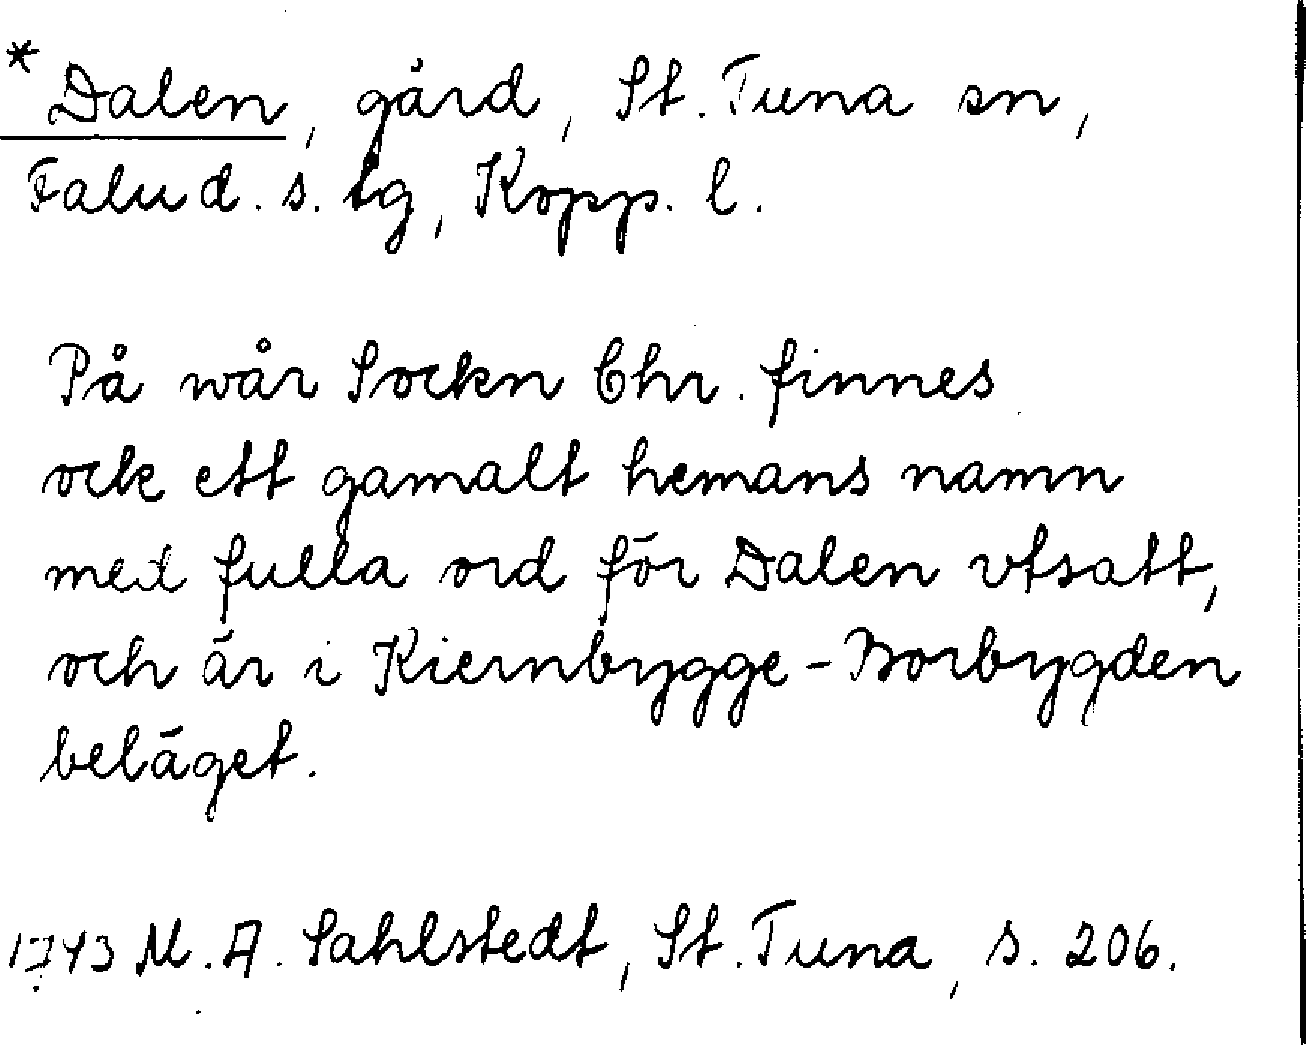 *Dalen, gård, St. Tuna sn,
Falu d. s. tg, Kopp. l.
På wår Sockn Chr. finnes
ock ett gamalt hemans namn
med fulla ord för Dalen vtsatt,
och är i Kiernbygge-Borbygden
beläget.
1743 M. A. Sahlstedt, St. Tuna, s. 206.